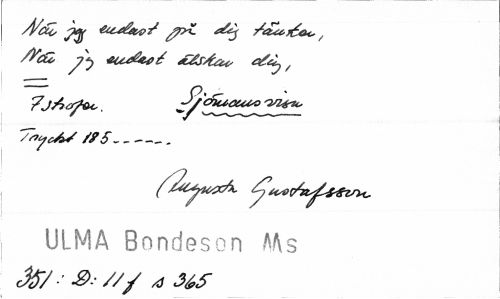 När jag endast på dig tänker,
När jag endast älskar dig,
7 strofer. Sjömansvisa
Tryckt 185------.
Augusta Gustafsson
ULMA Bondeson Ms
351: D: 11 f s 365